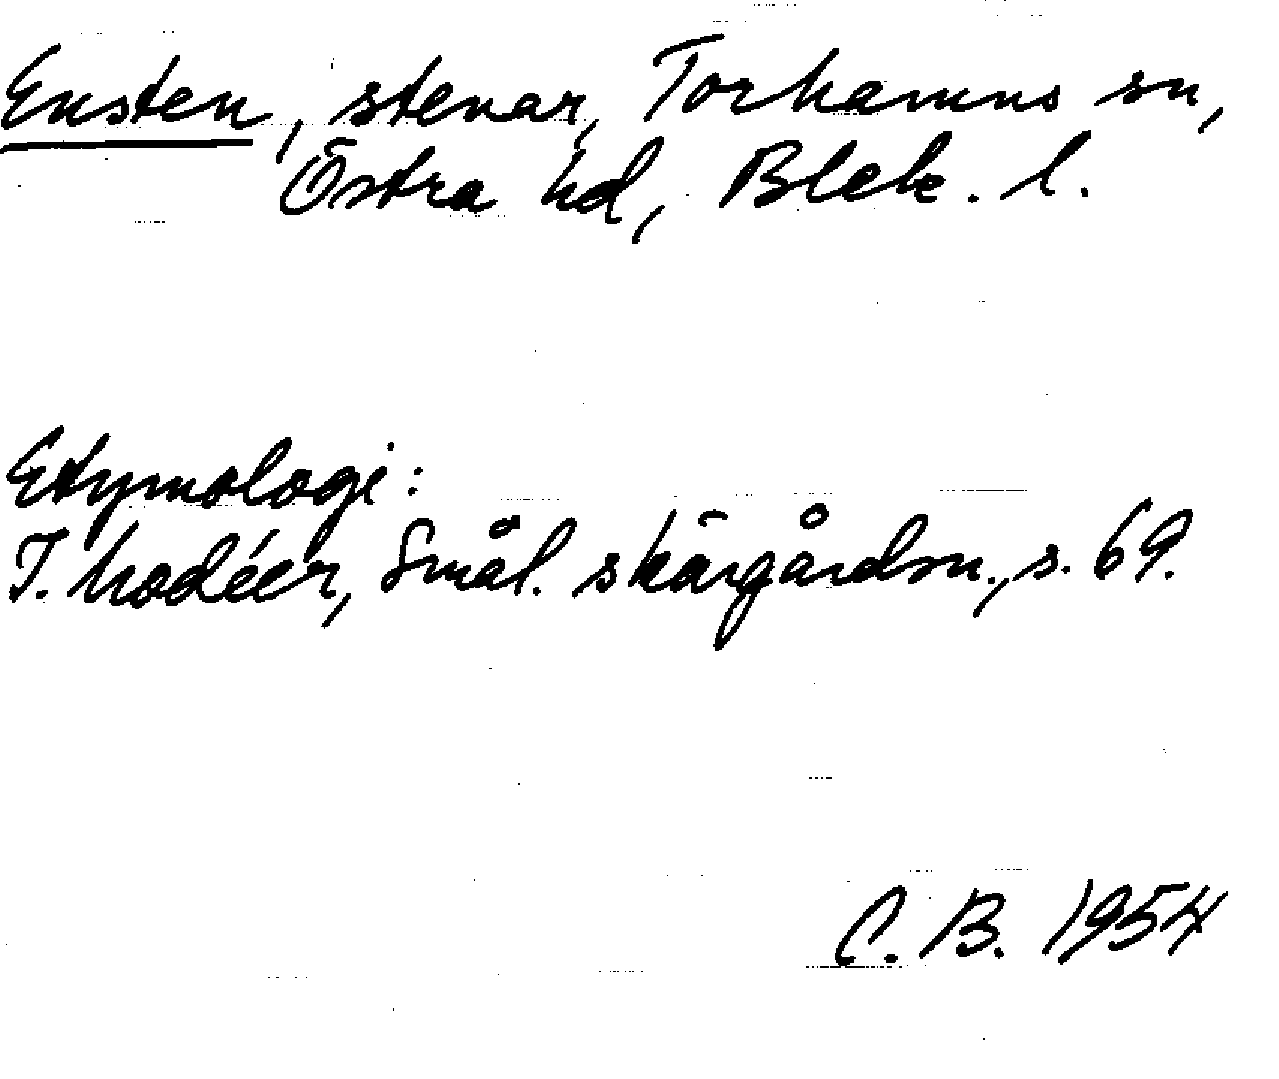 Ensten, stenar, Torhamns sn,
Östra hd, Blek. l.
Etymologi:
I. Modéer, Smål. skärgårdsn., s. 69.
C. B. 1954